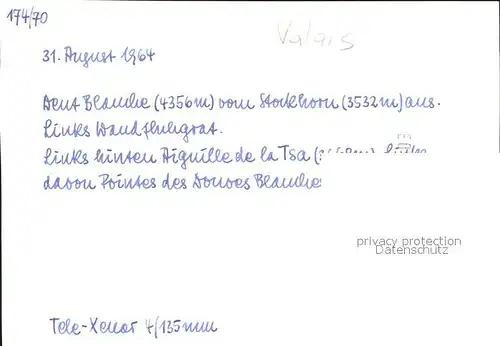 174/70
Valais
31. August 1964
Dent Blanche (4356m) vom Stockhorn (3532m) aus.
Links Wandfluhgrat.
Links hinten Aiguille de la Tsa
davon Pointes des Douves Blanche
privacy protection
Datenschutz
Tele-Xenar 4/135mm